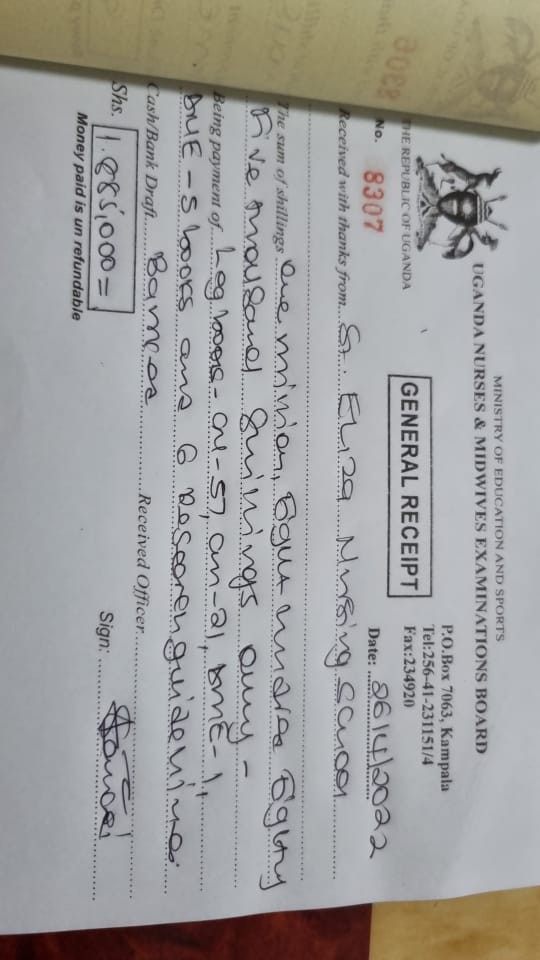 MINISTRY OF EDUCATION AND SPORTS
UGANDA NURSES & MIDWIVES EXAMINATIONS BOARD
THE REPUBLIC OF UGANDA
P.O.Box 7063, Kampala
Tel:256-41-231151/4
Fax:234920
GENERAL RECEIPT
No. 8307
Date: 26/4/2022
Received with thanks from St. Eliza Nursing School
The sum of shillings one million, Eight hundred Eighty
Five thousand shillings only -
Being payment of Log books - CN-57, CM-21, DME-1,
DNE-5 books and 6 Research guidelines
Cash/Bank Draft Received Officer
Shs. 1.885,000= Sign:
Money paid is un refundable